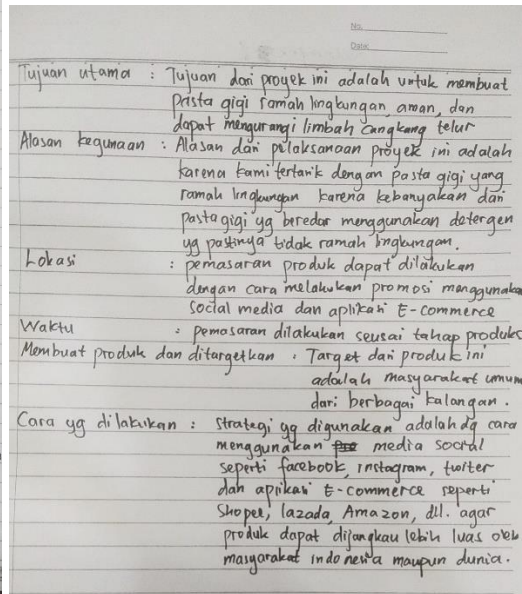 No.
Date:
Tujuan utama : Tujuan dari proyek ini adalah untuk membuat
pasta gigi ramah lingkungan, aman, dan
dapat mengurangi limbah cangkang telur
Alasan kegunaan : Alasan dari pelaksanaan proyek ini adalah
karena kami tertarik dengan pasta gigi yang
ramah lingkungan karena kebanyakan dari
pasta gigi yg beredar menggunakan detergen
yg pastinya tidak ramah lingkungan.
Lokasi : pemasaran produk dapat dilakukan
dengan cara melakukan promosi menggunakan
social media dan aplikasi E-commerce
Waktu : pemasaran dilakukan seusai tahap produksi
Membuat produk dan ditargetkan : Target dari produk ini
adalah masyarakat umum
dari berbagai kalangan.
Cara yg dilakukan : Strategi yg digunakan adalah dg cara
menggunakan media social
seperti facebook, instagram, twitter
dan aplikasi E-commerce seperti
Shopee, lazada, Amazon, dll. agar
produk dapat dijangkau lebih luas oleh
masyarakat indonesia maupun dunia.